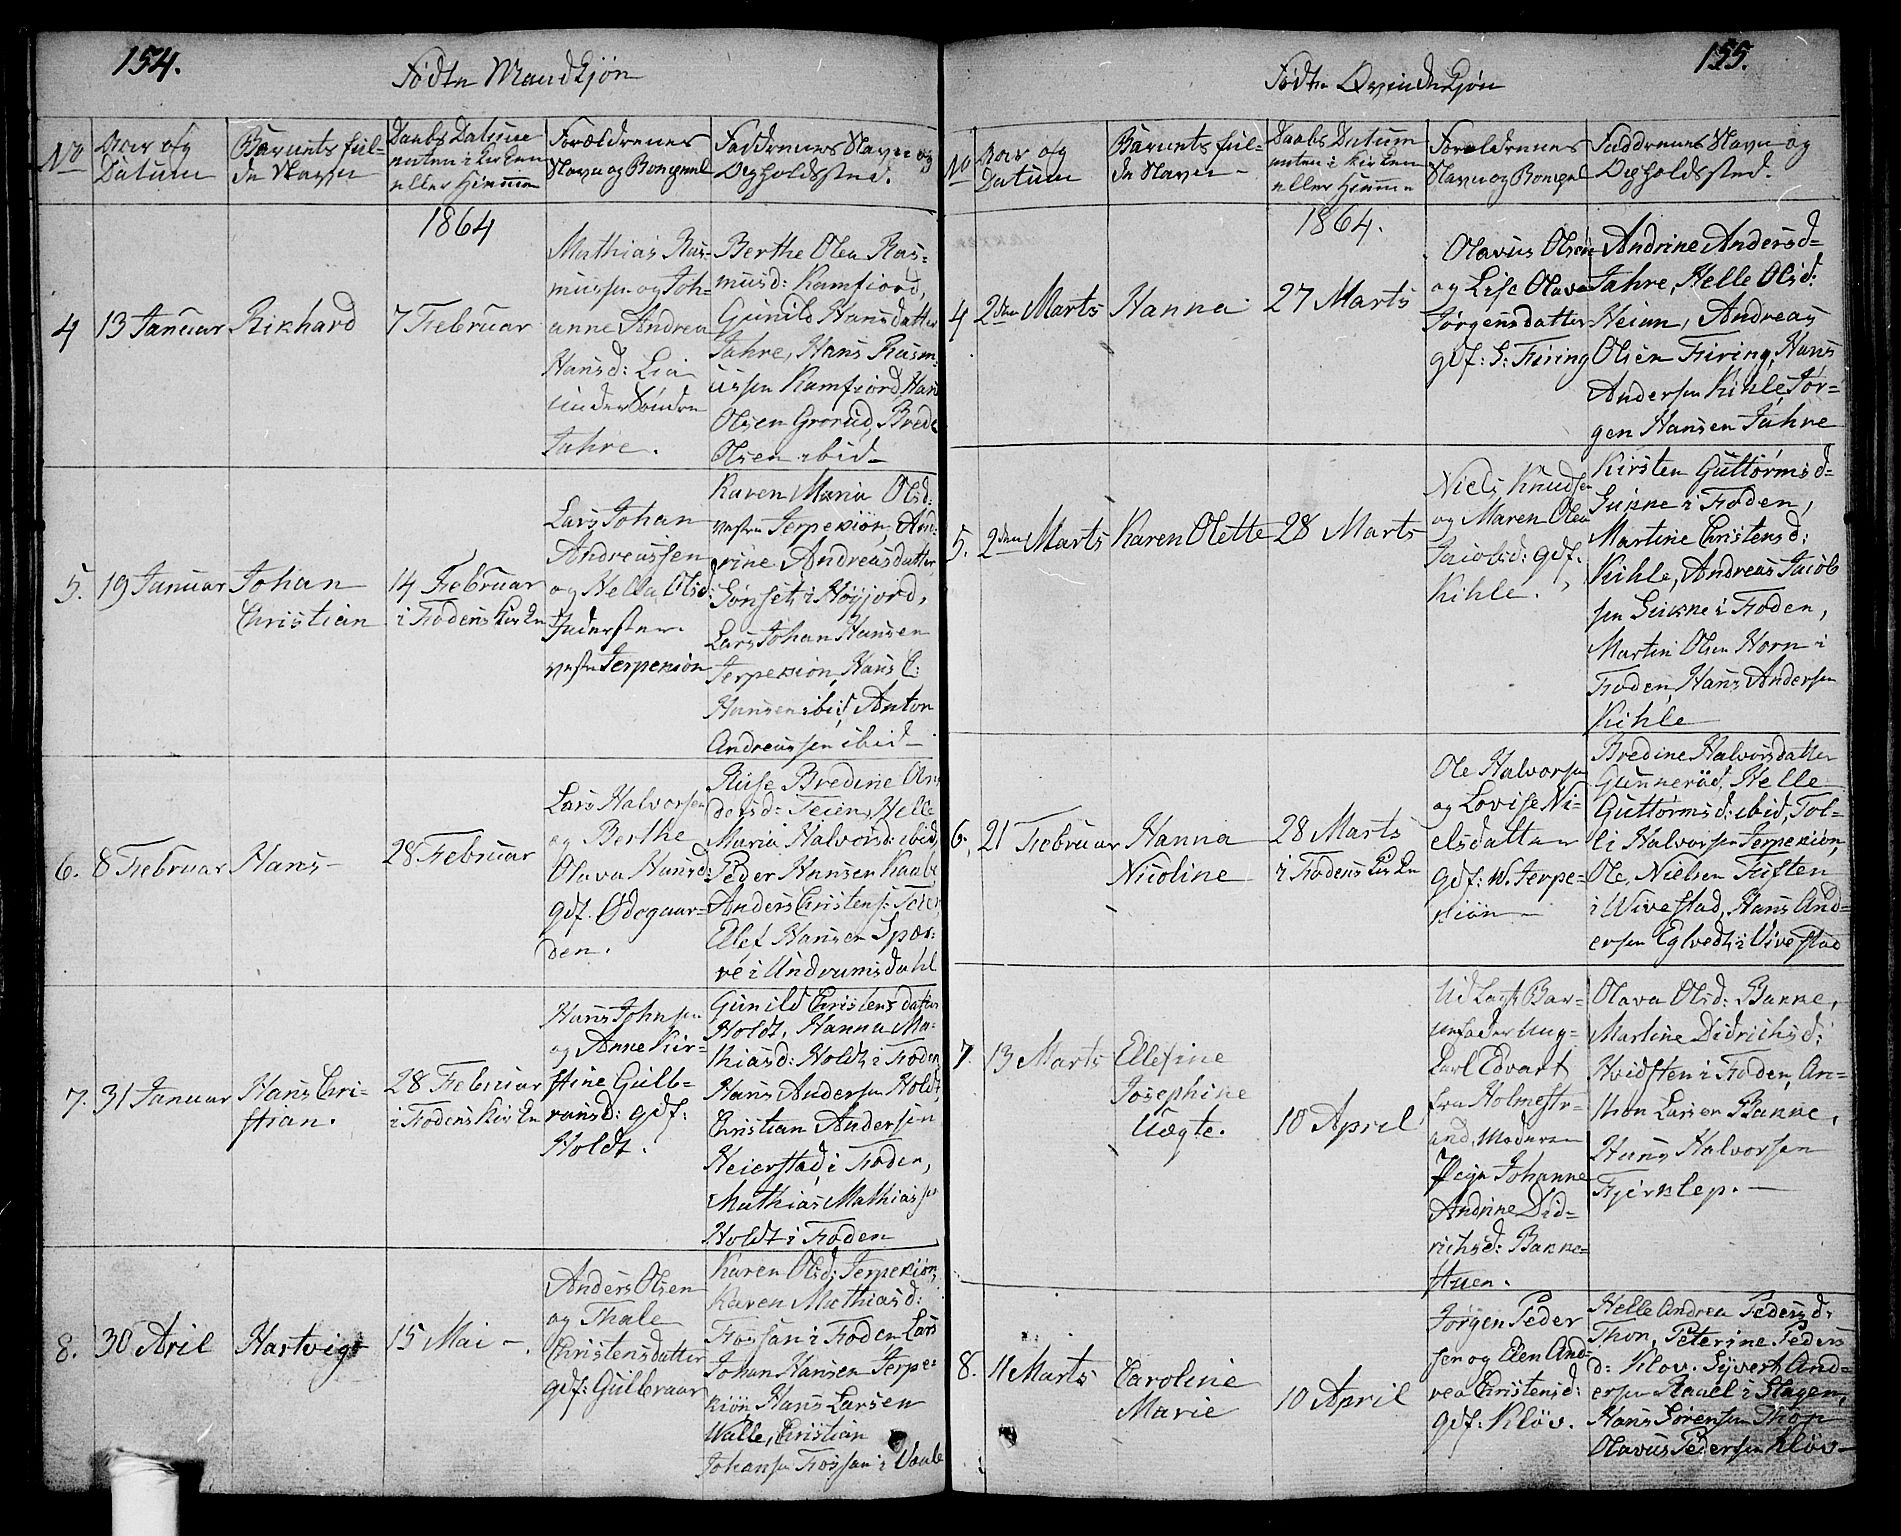 154.
Fødte Mandkjøn
No
Aar og
Datum
Barnets ful-
de Navn
Daabs Datum
enten i Kirken
eller Hjemme
Forældrenes
Navn og Bompæl
Faddrenes Navn og
Opholdssted.
1864
4
13 Januar
Rikhard
7 Februar
Mathias Ras-
mussen og Joh-
anne Andrea
Hansd: Lia
under Søndre
Jahre.
Berthe Olea Ras-
musd: Ramfiord,
Gunild Hansdatter
Jahre, Hans Rasm-
ussen Ramfiord Hans
Olsen Grorud, Brede
Olsen ibid
5.
19 Januar
Johan
Christian
14 Februar
i Fodens Kirke
Lars Johan
Andreassen
og Helle Olsd:
Inderster
vestre Jerpekiøn
Karen Maria Olsd:
vestre Jerpekiøn, And-
rine Andreasdatter
Sønset i Høyjord,
Lars Johan Hansen
Jerpekiøn, Hans C:
Hansen ibid, Anton
Andreassen ibid
6.
8 Februar
Hans
28 Februar
Lars Halvorsen
og Berthe
Olava Hansd:
gdf. Ødegaar-
den.
Bredine An-
dersd: Feien, Helle
Maria Halvorsd: ibid,
Peder Hansen Raabe
Anders Christens: Feier
Ellef Hansen Spær-
re i Undrumsdahl
7.
31 Januar
Hans Chri-
stian.
28 Februar
i Fodens Kirke
Hans Johnsen
og Anne Kir-
stine Gulb-
ransd: gdf:
Holdt.
Gunild Christensdatter
Holdt, Hanna Ma-
thiasd: Holdt i Foden
Hans Andersen Holdt,
Christian Andersen
Heierstad i Foden,
Mathias Mathiassen
Holdt i Foden
8.
30 Aril
Hartvig
15 Mai
Anders Olsen
og Thale
Christensdatter
gdf: Gulbraar
Karen Olsd: Jerpekiøn,
Karen Mathiasd:
Fossan i Foden Lars
Johan Hansen Jerpe-
kiøn Hans Larsen
Walle, Christian
Johansen Fossan i Vaale
155.
Fødte Qvindekjøn
No
Aar og
Datum
Barnets ful-
de Navn
Daabs Datum
enten i Kirken
eller Hjemme
Forældrenes
Navn og Bompæl
Faddrenes Navn og
Opholdssted.
1864.
4
2den Marts
Hanna
27 Marts
Olavus Olsen
og Lise Olava
Jørgensdatter
gdf: S: Firing
Andrine Andersd-
Jahre, Helle Olsd:
Heian, Andreas
Olsen Firing, Hans
Andersen Kihle Jør-
gen Hansen Jahre
5.
2den Marts
Karen Olette
28 Marts
Niels Knudsen
og Maren Olea
Jacobsd: gdf:
Kihle.
Kirsten Guttormsd-
Gukne i Foden,
Martine Christensd:
Kihle, Andreas Jacob
sen Gukne i Foden,
Martin Olsen Horn i
Foden, Hans Andersen
Kihle
6.
21 Februar
Hanna
Nicoline
28 Marts
i Fodens Kirke
Ole Halvorsen
og Lovise Ni-
elsdatter
gdf: W. Jerpe-
kiøn
Bredine Halvorsdatter
Gunnerød, Helle
Guttormsd: ibid, Tol-
li Halvorsen Jerpekiøn,
Ole, Nielsen Fiften
i Wivestad, Hans And-
ersen Eglvedt i Vivestad
7
13 Marts
Ellefine
Josephine
Aagte.
10 April
Udlagt Bar-
nefader Ung-
Carl Edvart
fra Holmestr-
and, Moderen
Pige Johanne
Andrine Did-
richsd: Bakke-
stuen.
Olava Olsd: Bakke,
Martine Didrichsd:
Hvidsten i Foden, An-
thon Larsen Bakke,
Hans Halvorsen
Fjerklep.
8.
11 Marts
Caroline
Marie
10 April
Jørgen Peder
sen og Elen And-
rea Christensd:
gdf: Kløv.
Helle Andrea Pedersd:
Thon, Peterine Peders
d: Klov. Syvert And-
ersen Raael i Slagen,
Hans Sørensen Thon
Olavus Pedersen Kløv